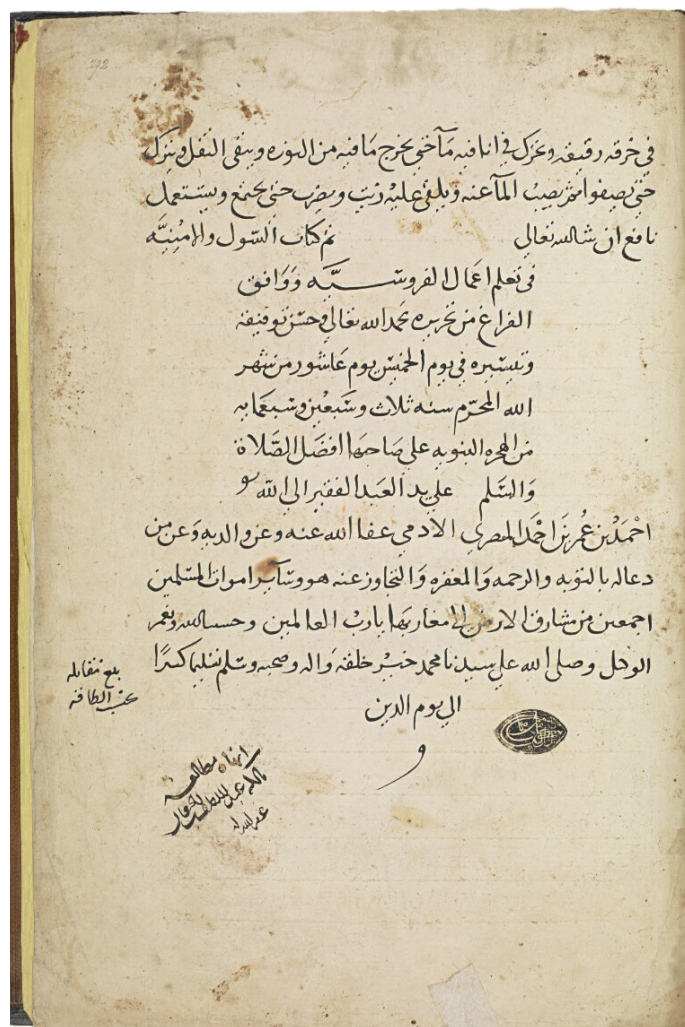 292
في خرقه رقيقه وتحرك في انا فيه مآ حتي يخرج ما فيه من النوره ويبقي الثفل ويترك
حتي يصفوا ثم يصب المآ عنه ويلقي عليه زيت ويضرب حتي يجتمع ويستعمل
نافع ان شا الله تعالي تم كتاب السول والامنيّه
في تعلم اعمال الفروسيّه ووافق
الفراغ من تحريره بحمد الله تعالي وحسن توفيقه
وتيسيره في يوم الخميس يوم عاشور من شهر
الله المحرّم سنه ثلاث وسبعين وسبعمايه
من الهجره النبويه علي صاحبها افضل الصّلاة
والسّلم علي يد العبد الفقير الي الله
احمد بن عمر بن احمد المصري الادمي عفا الله عنه وعن والديه وعن من
دعا له بالتوبه والرحمه والمغفره والتجاوز عنه هو وساير اموات المسلمين
اجمعين من مشارق الارض الي مغاربها يا ربّ العالمين وحسبنا الله ونعم
الوكيل وصلي الله علي سيدنا محمد خير خلقه واله وصحبه وسلم تسليما كثيرًا
الي يوم الدين
بلغ مقابله
بحسب الطاقه
انهاه مطالعه